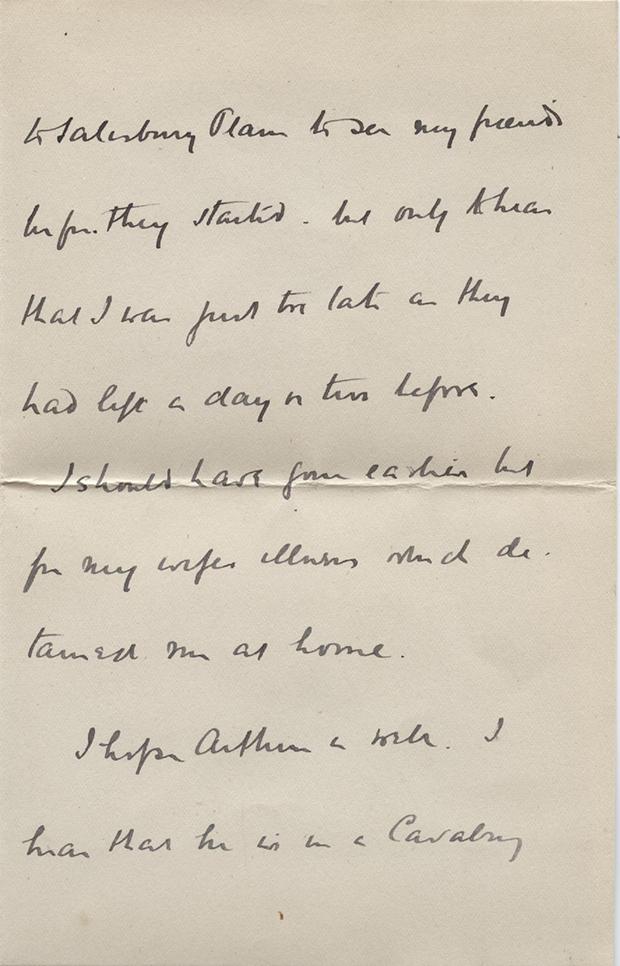 to Salesbury Plain to see my friends
before they started - but only to hear
that I was just too late as they
had left a day or two before.
I should have gone earlier but
for my wifes illness which de-
tained me at home.
I hope Arthur is well. I
hear that he is in a Cavalry